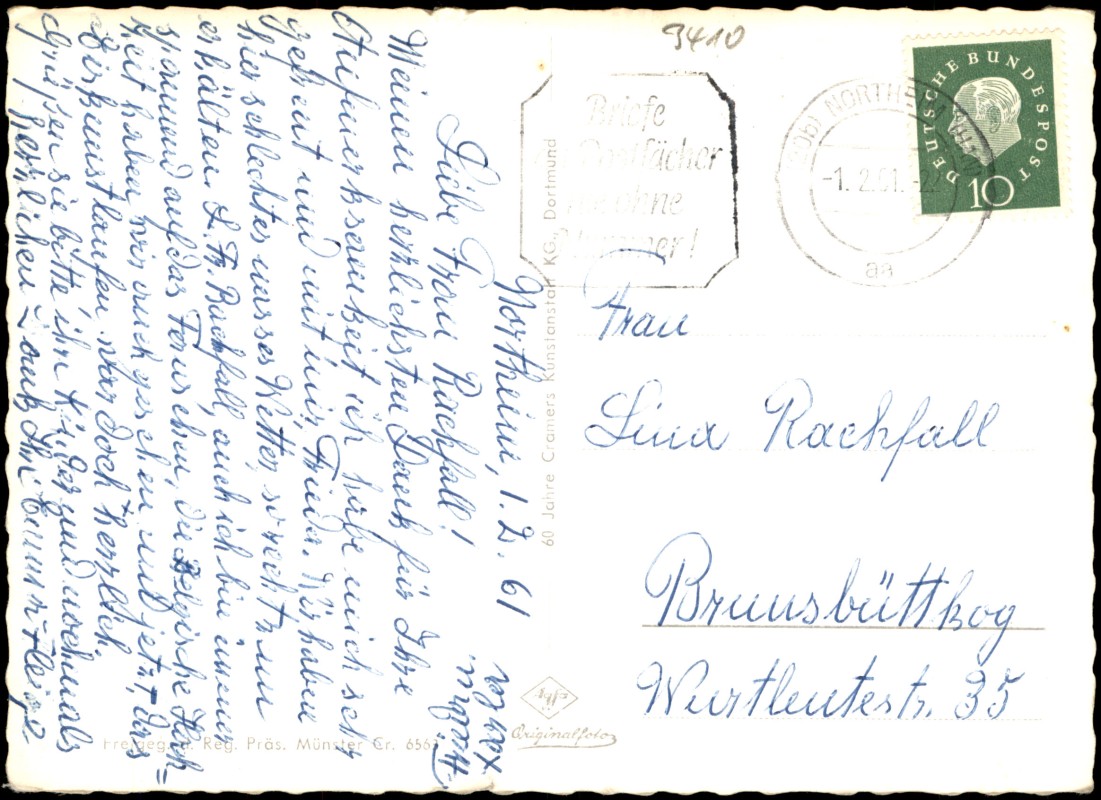 9410
Briefe
Postfächer
ohne
Nummer!
(20b) NORTHEIM (HAN)
-1.2.61.-22
aa
DEUTSCHE BUNDESPOST
10
Northeim, 1. 2. 61
Liebe Frau Rachfall!
Meinen herzlichsten Dank für Ihre
Aufmerksamkeit ich habe mich sehr
gefreut und mit mir Frieda. Wir haben
hier schlechtes nasses Wetter, so recht zum
erkälten. L. Fr. Rachfall, auch ich bin immer
spannend auf das Fernsehen, die Belgische Hoch=
zeit haben wir auch gesehen und jetzt das
Eiskunstlaufen, war doch herzlich.
Grüßen sie bitte ihre Kinder und nochmals
herzlichen Dank Ihre Emmi
60 Jahre Cramers Kunstanstalt KG., Dortmund
Frau
Lina Rachfall
Brunsbüttkog
Wurtleutestr. 35
Agfa
Originalfoto
Freigeg. d. Reg. Präs. Münster Cr. 6563